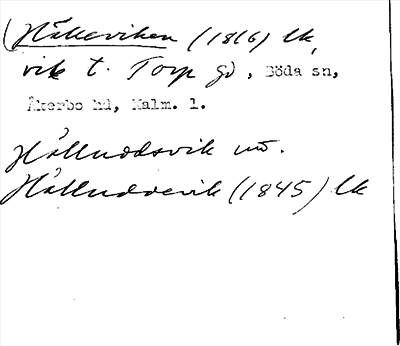 (Hålleviken (1816) lk,
vik t. Torp gd, Böda sn,
Åkerbo hd, Kalm. l.
Hållnodsvik
Hålludsvik (1845) lk